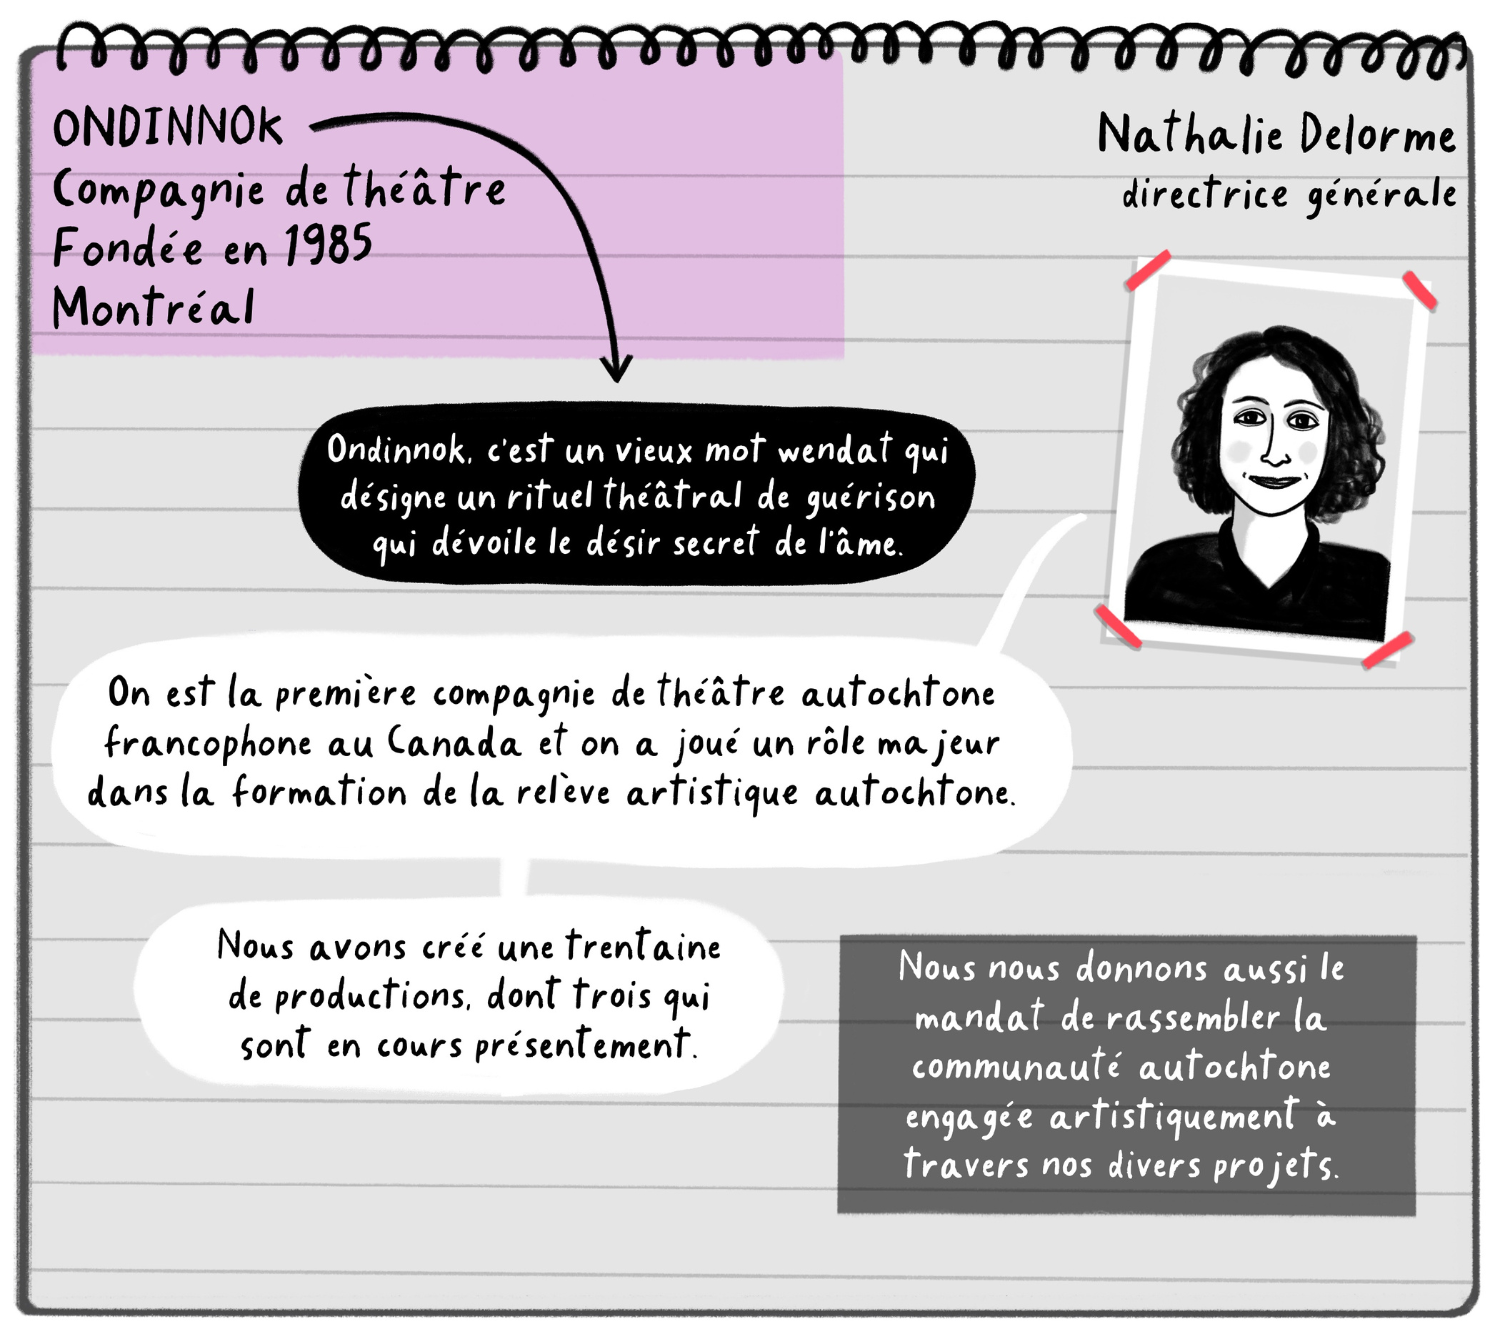 ONDINNOK
Compagnie de théâtre
Fondée en 1985
Montréal
Nathalie Delorme
directrice générale
Ondinnok, c'est un vieux mot wendat qui
désigne un rituel théâtral de guérison
qui dévoile le désir secret de l'âme.
On est la première compagnie de théâtre autochtone
francophone au Canada et on a joué un rôle majeur
dans la formation de la relève artistique autochtone.
Nous avons créé une trentaine
de productions, dont trois qui
sont en cours présentement.
Nous nous donnons aussi le
mandat de rassembler la
communauté autochtone
engagée artistiquement à
travers nos divers projets.